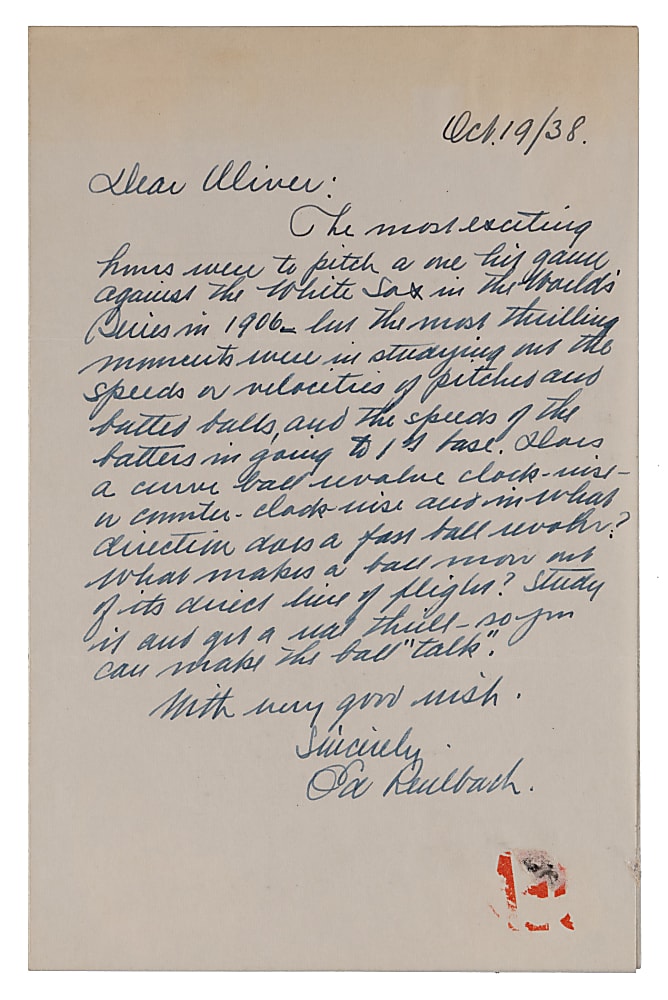 Oct. 19/38.
Dear Oliver:
The most exciting
hours were to pitch a one hit game
against the White Sox in the World's
Series in 1906 – but the most thrilling
moments were in studying out the
speeds or velocities of pitches and
batted balls, and the speeds of the
batters in going to 1st base. Does
a curve ball revolve clock-wise –
or counter-clock-wise and in what
direction does a fast ball revolve?
What makes a ball move out
of its direct line of flight? Study
it and get a real thrill – so you
can make the ball "talk".
With very good wish.
Sincerely.
Ed Reulbach.